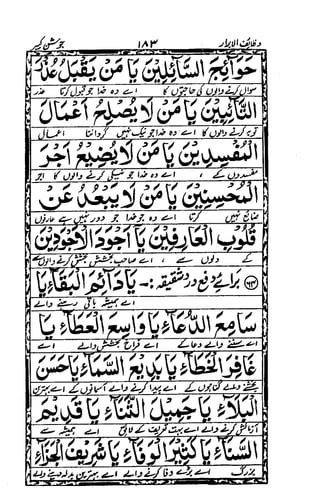 وظائف الابرار ۱۸۳ جوشن کبیر
حَوَآئِجَ السَّآئِلِينَ يَا مَنْ يَقْبَلُ عُذْرَ
سوال کرنے والوں کی حاجتوں کا اے وہ خدا جو قبول کرتا عذر
التَّآئِبِينَ يَا مَنْ لَا يُصْلِحُ اَعْمَالَ
توبہ کرنے والوں کا اے وہ خدا جو نیک نہیں گردانتا اعمال
الْمُفْسِدِينَ يَا مَنْ لَا يُضِيعُ اَجْرَ
مفسدوں کے اے وہ خدا جو نیکی کرنے والوں کا اجر
الْمُحْسِنِينَ يَا مَنْ لَا يَبْعُدُ عَنْ
ضائع نہیں کرتا اے وہ خدا جو دور نہیں ہے عارفوں
قُلُوبِ الْعَارِفِينَ يَا اَجْوَدَ الْاَجْوَدِينَ
کے دلوں سے، اے صاحب بخشش بخشش کرنے والوں سے
برائے دفع درد شقیقہ :- يَا دَآئِمَ الْبَقَآءِ يَا
اے ہمیشہ باقی رہنے والے
سَامِعَ الدُّعَآءِ يَا وَاسِعَ الْعَطَآءِ يَا
اے سننے والے دعا کے اے فراخ بخشش والے اے
غَافِرَ الْخَطَآءِ يَا بَدِيعَ السَّمَآءِ يَا حَسَنَ
بخشنے والے گناہوں کے اے پیدا کرنے والے آسمانوں کے اے بہترین
الْبَلَآءِ يَا جَمِيلَ الثَّنَآءِ يَا قَدِيمَ
آزمائش کرنے والے اے بہت تعریف کے لائق اے ہمیشہ سے
السَّنَآءِ يَا كَثِيرَ الْوَفَآءِ يَا شَرِيفَ الْجَزَآءِ
بزرگ اے بڑے وفا کرنے والے اے بہترین بدلہ دینے والے